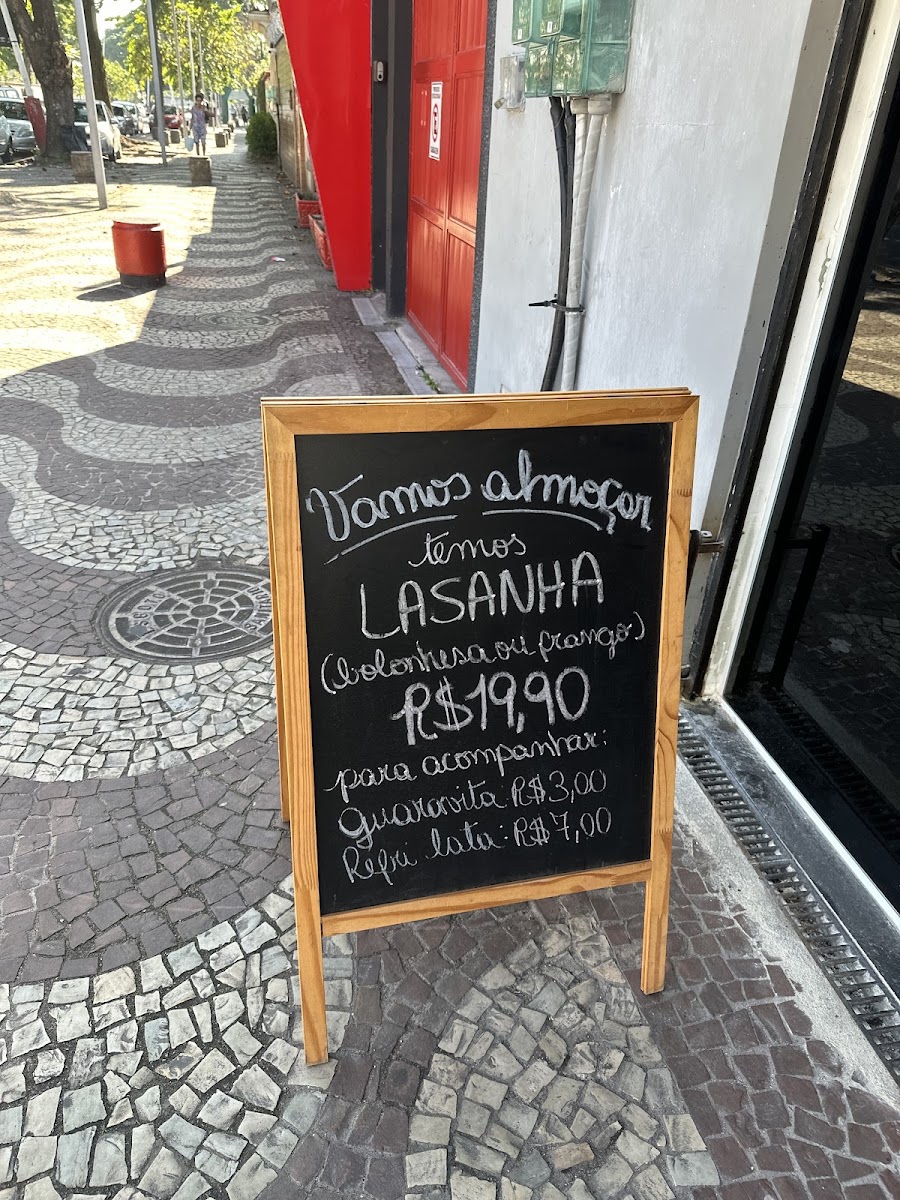 Vamos almoçar
temos
LASANHA
(bolonhesa ou frango)
R$19,90
para acompanhar:
Guaravita: R$3,00
Refri lata: R$7,00